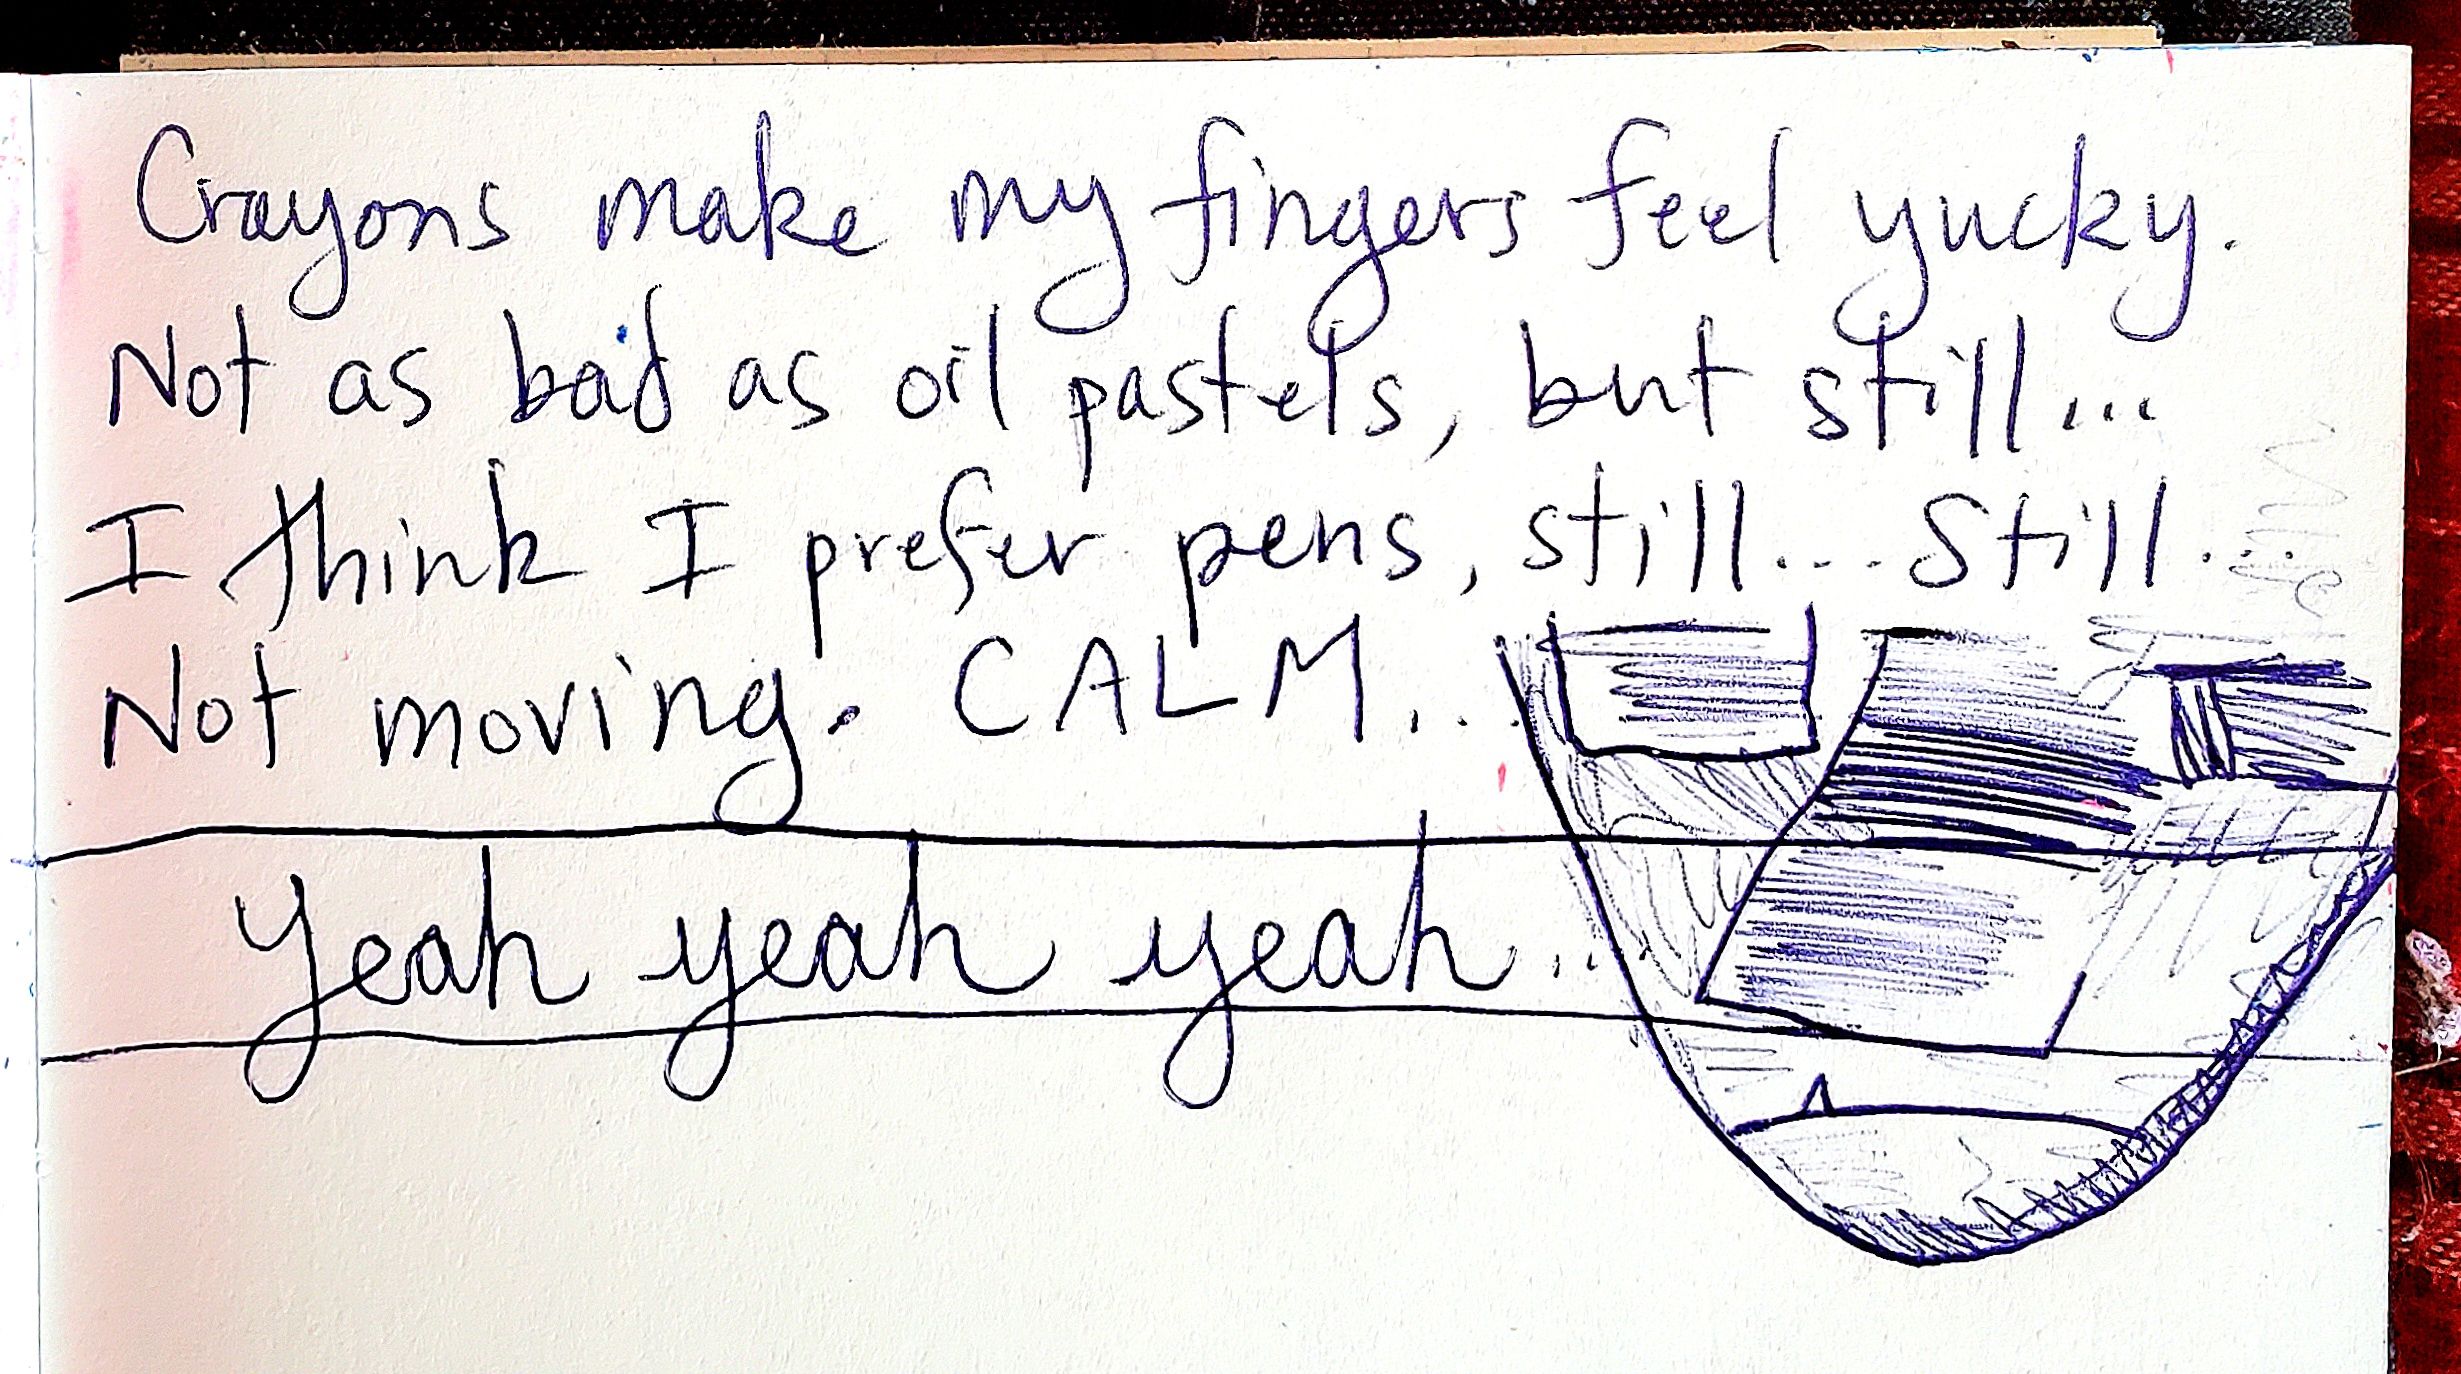 Crayons make my fingers feel yucky.
Not as bad as oil pastels, but still...
I think I prefer pens, still... Still...
Not moving. CALM...
Yeah yeah yeah...